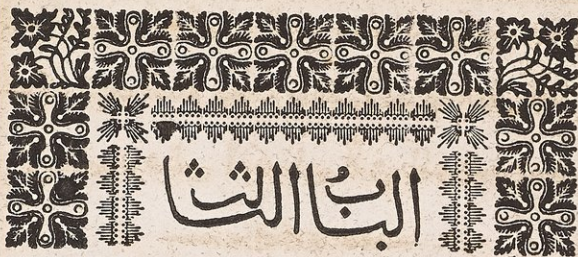 البابُ الثالث